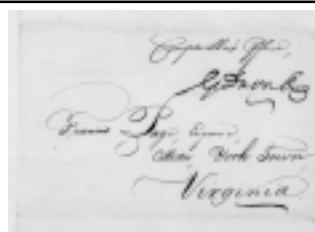 Comptroller's Office,
Francis Page, Esquire,
York Town
Virginia